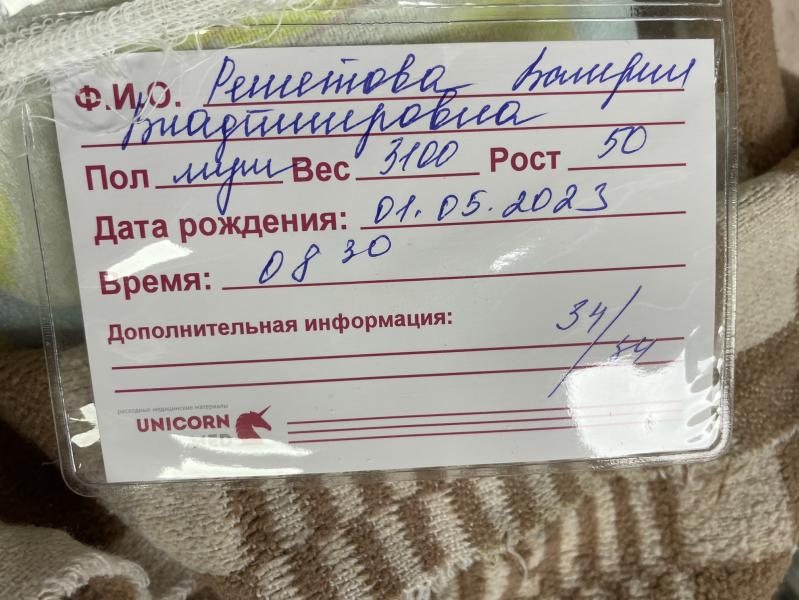 Ф.И.О. Решетова Валерия
Владимировна
Пол муж Вес 3100 Рост 50
Дата рождения: 01.05.2023
Время: 08 30
Дополнительная информация: 34/
34
расходные медицинские материалы
UNICORN
MED